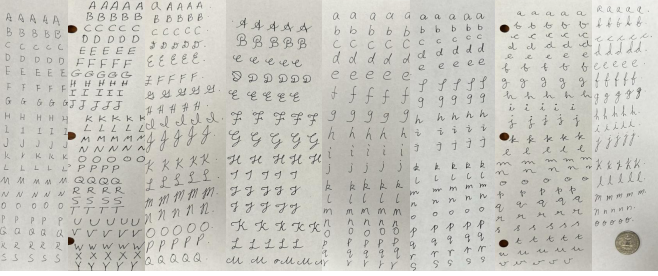 A A A A A
B B B B B
C C C C C
D D D D D
E E E E E
F F F F F
G G G G G
H H H H H
I I I I I
J J J J J
K K K K K
L L L L L
M M M M M
N N N N N
O O O O O
P P P P P
Q Q Q Q Q
R R R R R
S S S S S
AAAAA
BBBBB
CCCCC
DDDDD
EEEEE
FFFFF
GGGGG
HHHHH
IIIII
JJJJJ
KKKKK
LLLLL
MMMMM
NNNNN
OOOOO
PPPP
QQQQ
RRRR
SSSS
TTTT
UUUUU
VVVVV
WWWWW
XXXXX
YYYYY
a A A A A.
B B B B B.
C C C C C.
D D D D D.
E E E E E.
F F F F F.
G G G G G.
H H H H H.
J J J J J.
K K K K K.
L L L L L.
M M M M M.
N N N N N.
O O O O O.
P P P P P.
Q Q Q Q Q.
A A A A A
B B B B B
C C C C C
D D D D D D
E E E E E
F F F F F
G G G G G
H H H H H
I I I I I
J J J J J
K K K K K
L L L L L
a a a a a
b b b b b
c c c c c
d d d d d
e e e e e
f f f f f
g g g g g
h h h h h
i i i i i
j j j j j
k k k k k
l l l l l
m m m m m
n n n n n
o o o o o
p p p p p
q q q q q
r r r r r
a a a a a
b b b b b
c c c c c
d d d d d
e e e e e
f f f f f
g g g g g
h h h h h
i i i i i
j j j j j
k k k k k
l l l l l
m m m m m
n n n n n
o o o o o
p p p p p
q q q q q
r r r r r
s s s s s
a a a a a
b b b b b
c c c c c
d d d d d
e e e e e
f f f f f
g g g g g
h h h h h
i i i i i
j j j j j
k k k k k
l l l l l
m m m m m
n n n n n
o o o o o
p p p p p
q q q q q
r r r r r
s s s s s
t t t t t
u u u u u
v v v v v
a a a a a.
b b b b b.
c c c c c.
d d d d d.
e e e e e.
f f f f f.
g g g g g.
h h h h h.
i i i i i.
j j j j j.
k k k k k.
l l l l l.
m m m m m.
n n n n n.
o o o o o.